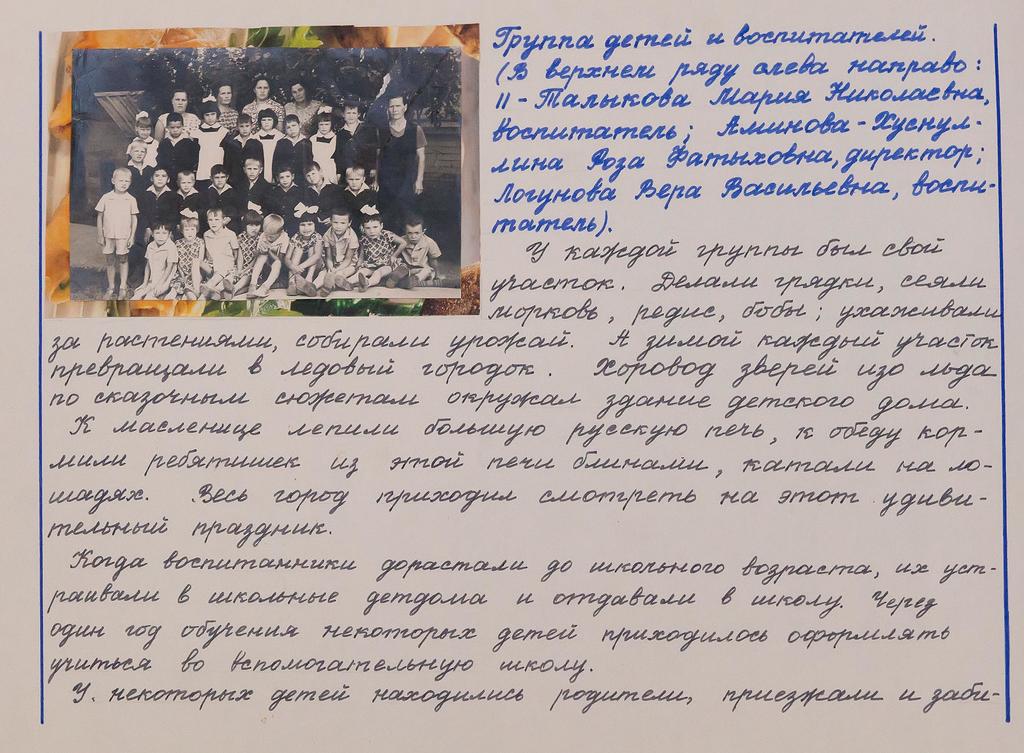 Группа детей и воспитателей.
(В верхнем ряду слева направо:
II - Талыкова Мария Николаевна,
воспитатель; Аминова - Хуснул-
лина Роза Фатыховна, директор;
Логунова Вера Васильевна, воспи-
татель).
У каждой группы был свой
участок. Делали грядки, сеяли
морковь, редис, бобы; ухаживали
за растениями, собирали урожай. А зимой каждый участок
превращали в ледовый городок. Хоровод зверей изо льда
по сказочным сюжетам окружал здание детского дома.
К масленице лепили большую русскую печь, к обеду кор-
мили ребятишек из этой печи блинами, катали на ло-
шадях. Весь город приходил смотреть на этот удиви-
тельный праздник.
Когда воспитанники дорастали до школьного возраста, их уст-
раивали в школьные детдома и отдавали в школу. Через
один год обучения некоторых детей приходилось оформлять
учиться во вспомогательную школу.
У некоторых детей находились родители, приезжали и заби-